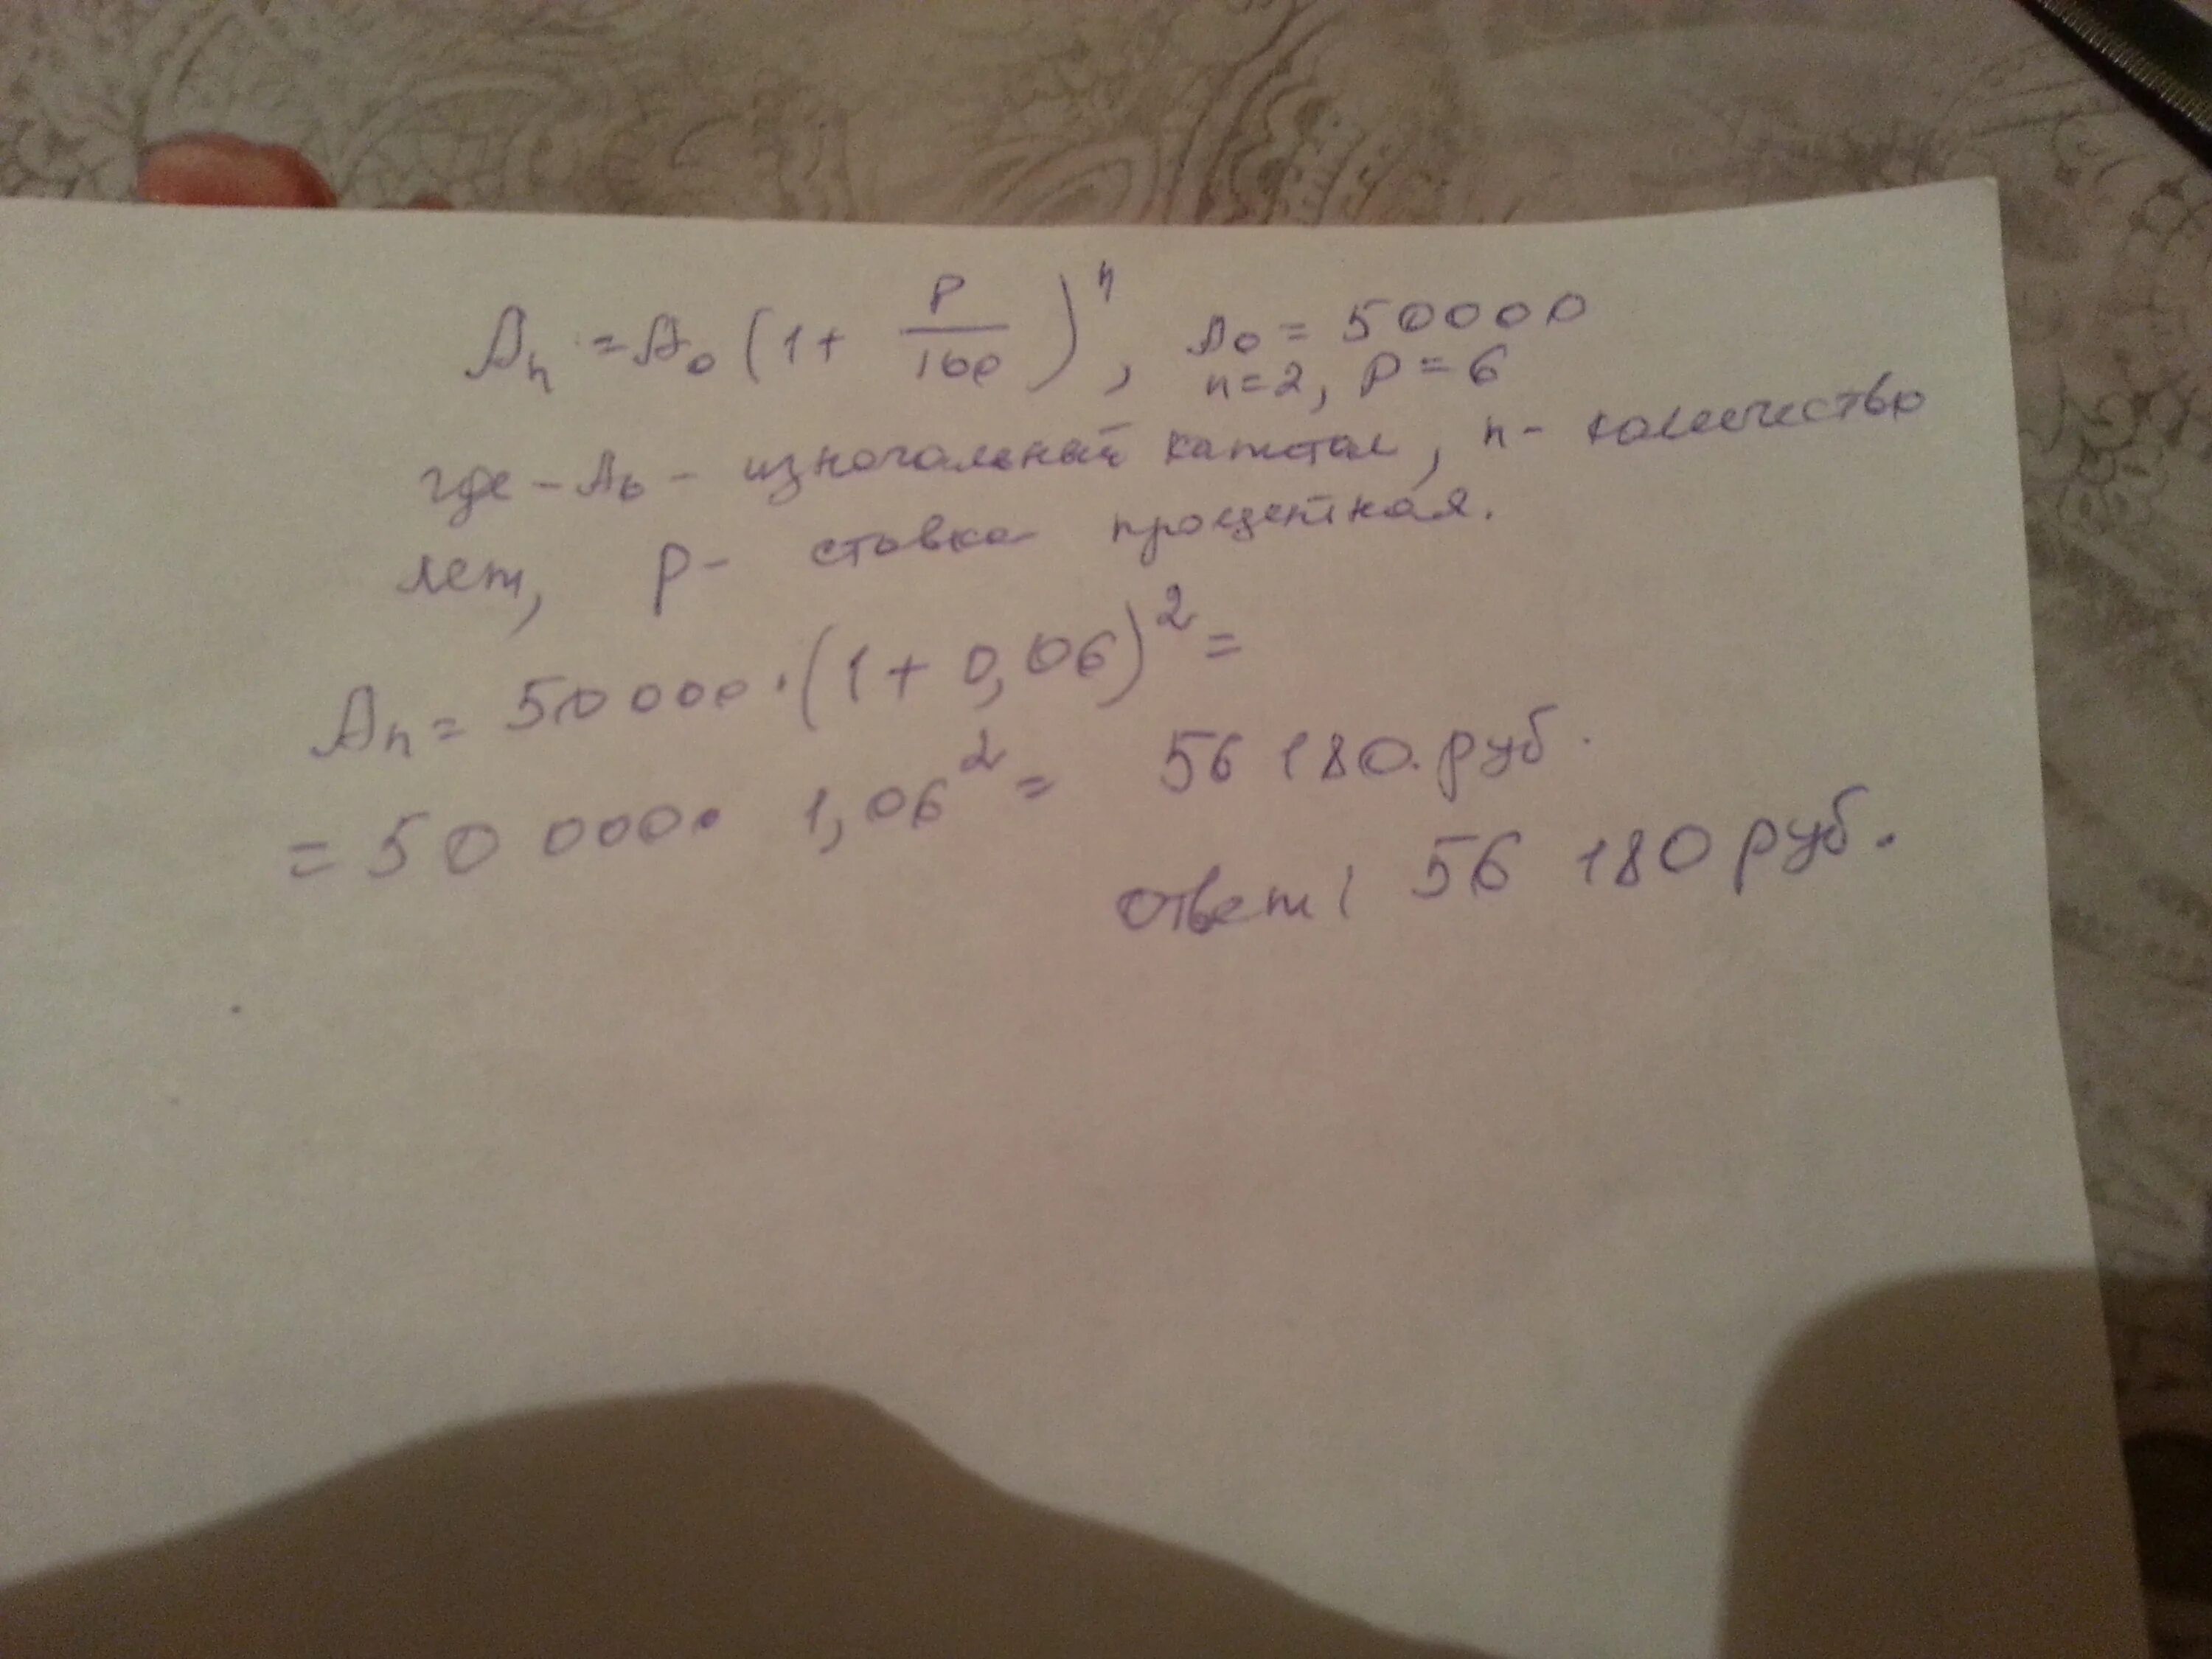 Aₙ = A₀ (1 + P/100)ⁿ, A₀ = 50000
n=2, P=6
где – A₀ – изначальный капитал, n – количество
лет, p – ставка процентная.
Aₙ = 50 000 · (1 + 0,06)² =
= 50 000 · 1,06² = 56 180. руб.
ответ: 56 180 руб.